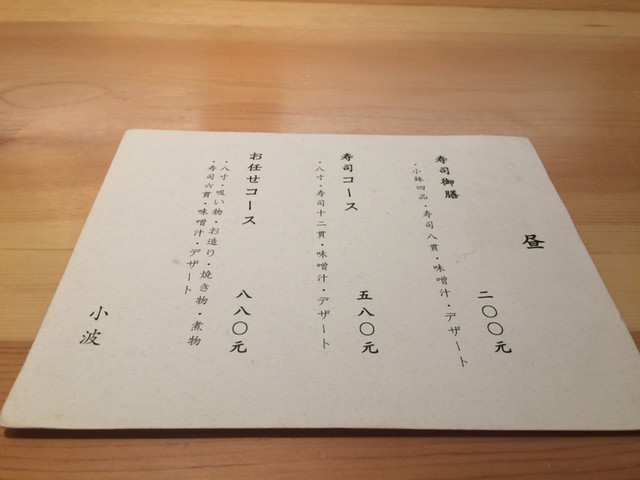 昼
寿司御膳
・小鉢四品・寿司八貫・味噌汁・デザート
二〇〇元
寿司コース
・八寸・寿司十二貫・味噌汁・デザート
五八〇元
お任せコース
・八寸・吸い物・お造り・焼き物・煮物
・寿司六貫・味噌汁・デザート
八八〇元
小波